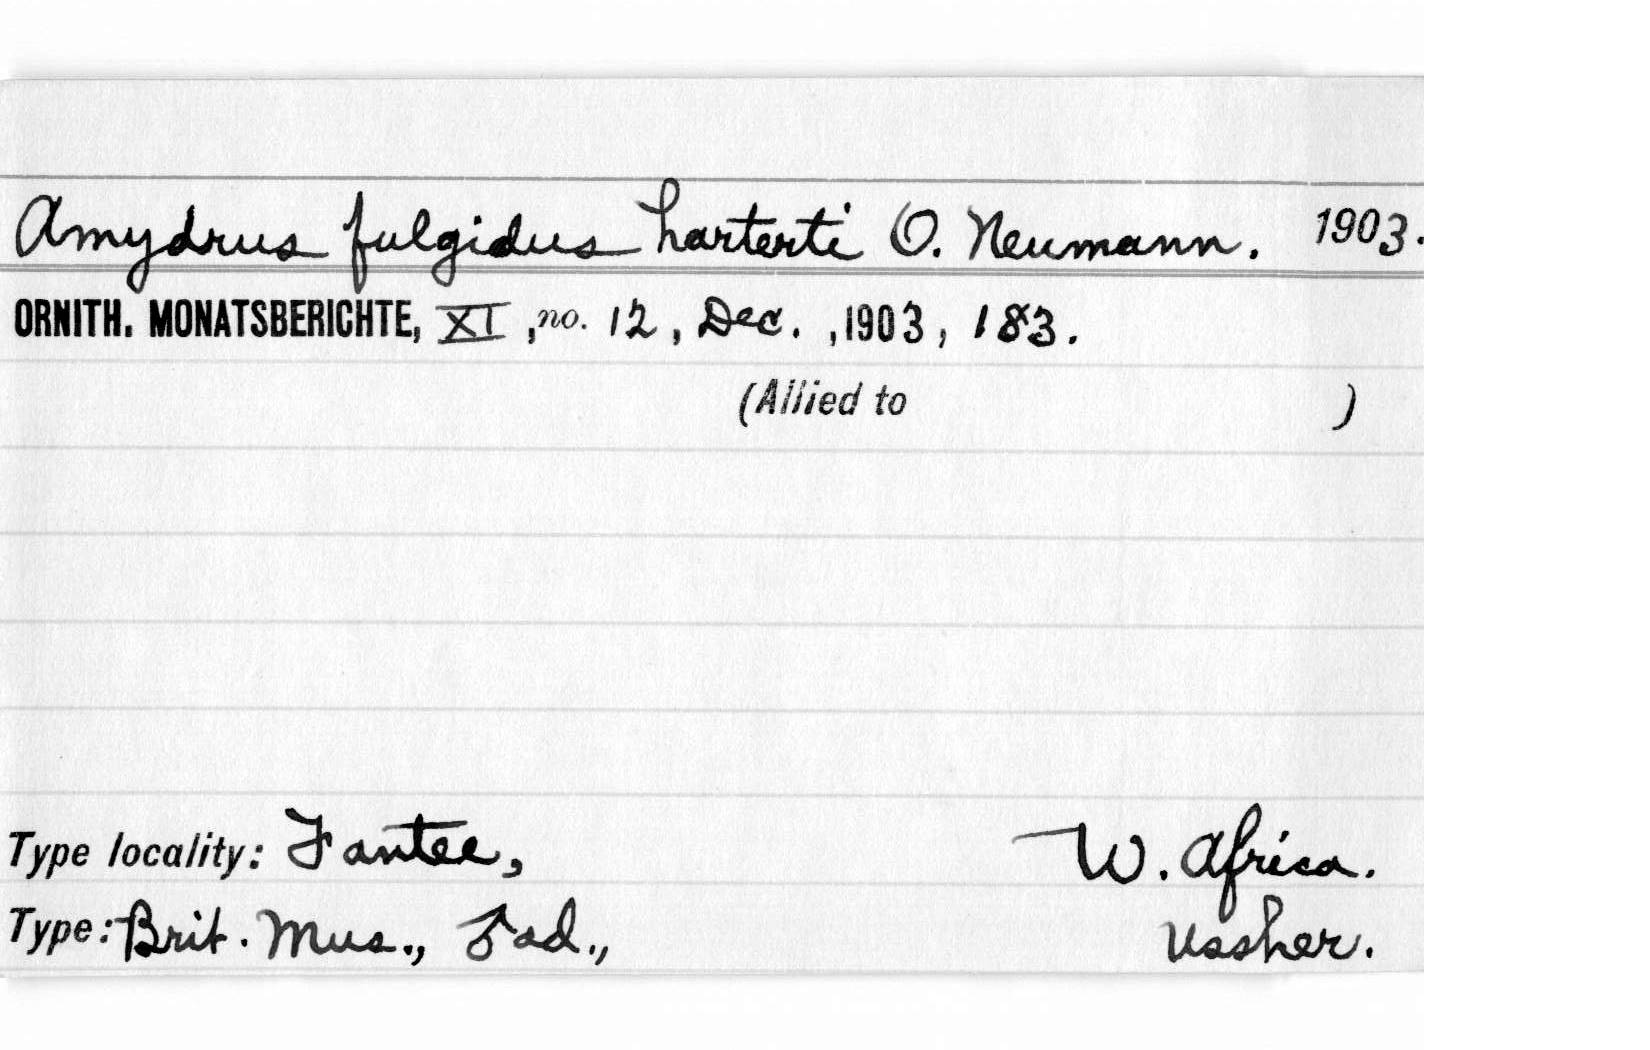 Amydrus fulgidus harterti O. Neumann. 1903.
ORNITH. MONATSBERICHTE, XI, no. 12, Dec., 1903, 183.
(Allied to )
Type locality: Fantee, W. Africa.
Type: Brit. Mus., ♂ ad., Ussher.